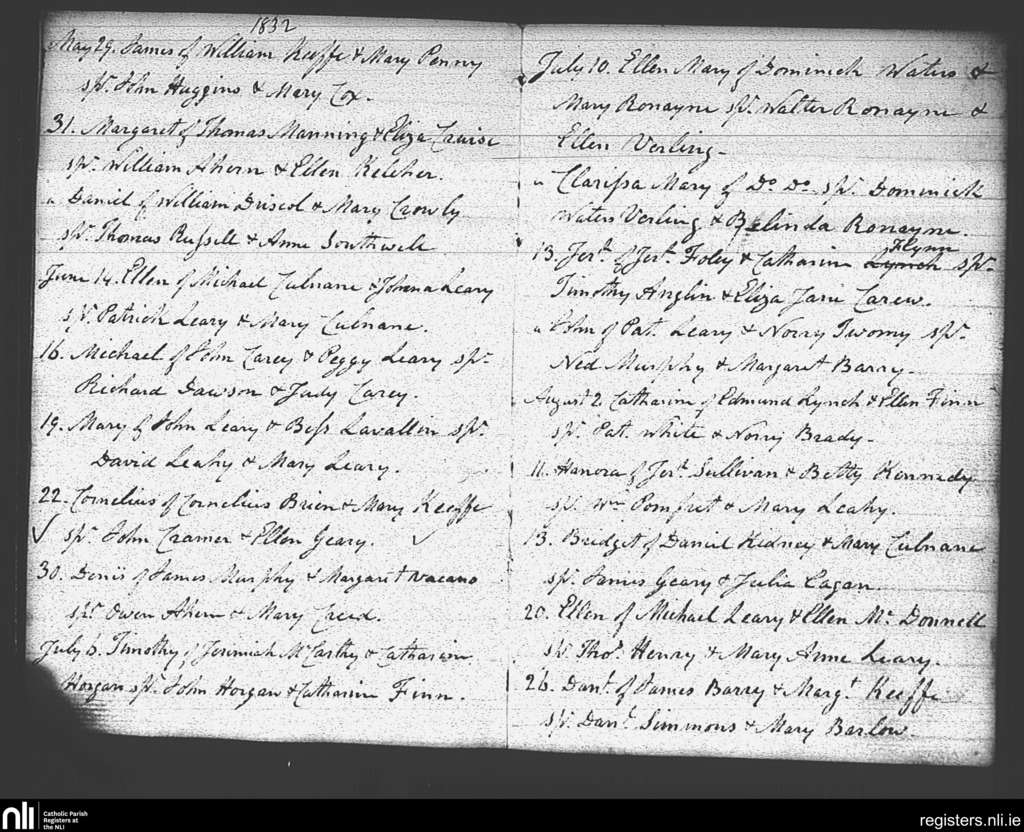 1832
May 29. James of William Keeffe & Mary Penny
spr. John Huggins & Mary Cox.
31. Margaret of Thomas Manning & Eliza Cruise
spr. William Ahern & Ellen Keleher.
" Daniel of William Driscol & Mary Crowly
spr. Thomas Russell & Anne Southwell
June 14. Ellen of Michael Culnane & Johna Leary
spr. Patrick Leary & Mary Culnane.
16. Michael of John Carey & Peggy Leary spr.
Richard Dawson & Judy Carey.
19. Mary of John Leary & Bess Lavallin spr.
David Leahy & Mary Leary.
22. Cornelius of Cornelius Brien & Mary Keeffe
spr. John Cramer & Ellen Geary.
30. Denis of James Murphy & Margaret
spr. Owen Ahern & Mary Creed.
July 6. Timothy of Jerimiah McCarthy & Catharine
Horgan spr. John Horgan & Catharine Finn.
July 10. Ellen Mary of Dominick Waters &
Mary Ronayne spr. Walter Ronayne &
Ellen Verling.
" Clarissa Mary of Do. Do. spr. Dominick
Waters Verling & Belinda Ronayne.
Flynn
13. Jerh. of Jerh. Foley & Catharine Lynch spr.
Timothy Anglin & Eliza Jane Carew.
" John of Pat. Leary & Norry Twomy spr.
Ned Murphy & Margaret Barry.
August 2. Catharine of Edmund Lynch & Ellen Finn
spr. Pat. White & Norry Brady.
11. Hanora of Jerh. Sullivan & Betty Kennedy
spr. Wm. Pomfret & Mary Leahy.
13. Bridget of Daniel Kidney & Mary Culnane
spr. James Geary & Julia Eagan.
20. Ellen of Michael Leary & Ellen Mc. Donnell
spr. Thos. Henry & Mary Anne Leary.
26. Danl. of James Barry & Margt. Keeffe
spr. Danl. Simmons & Mary Barlow.
nli
Catholic Parish
Registers at
the NLI
registers.nli.ie